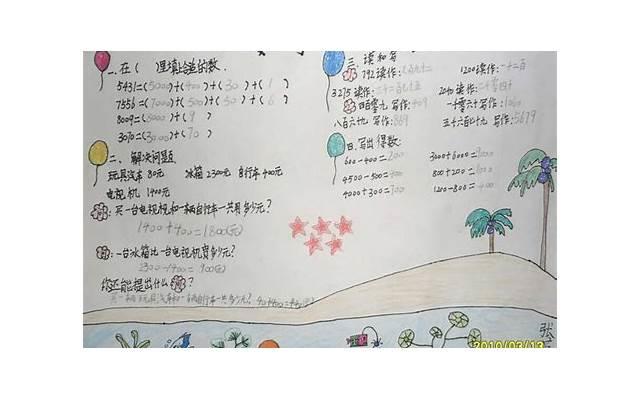 一、在( )里填上合适的数.
5431=(5000)+(400)+(30)+(1)
7556=(7000)+(500)+(50)+(6)
8009=(8000)+(9)
3070=(3000)+(70)
二、解决问题
玩具汽车 80元 冰箱 2300元 自行车 400元
电视机 1400元
买一台电视机和一辆自行车一共是多少元?
1400+400=1800(元)
一台冰箱比一台电视机贵多少元?
2300-1400=900(元)
你还能提出什么问题?
买一辆玩具汽车和一辆自行车一共多少元?
三、读和写
792读作:七百九十二
1200读作:一千二百
3275读作:
2040读作:二千零四十
四百零九 写作:409
一千零六十写作:1060
八百六十九 写作:869
五千六百七十九 写作:5679
四.写出得数:
600-400=200
3000+6000=9000
4500-500=4000
800+200=1000
4000+300=
1200-800=400
张
2010/03/13